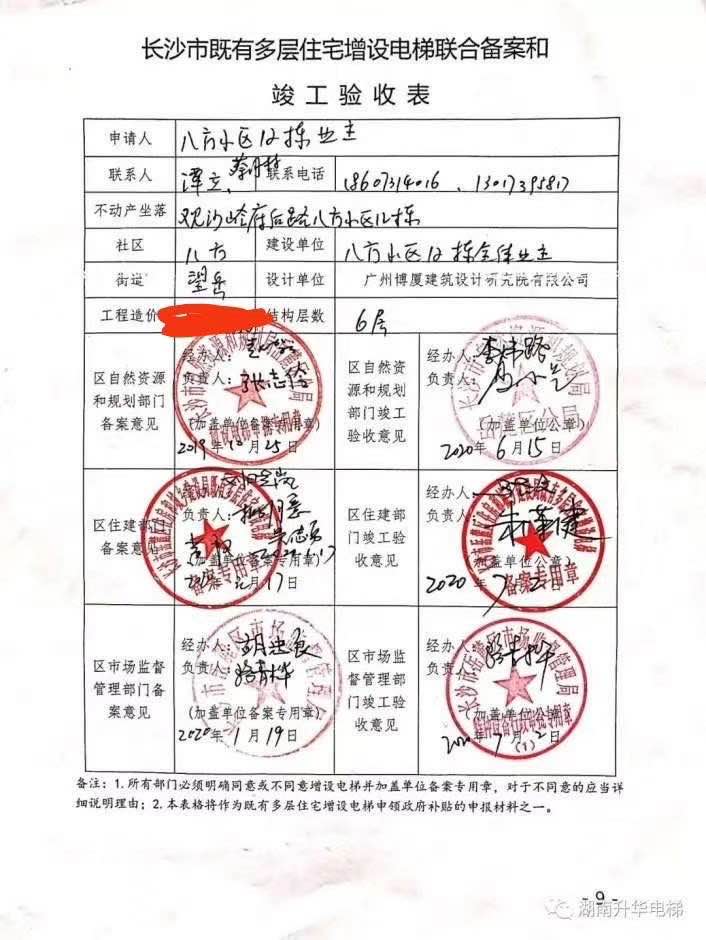 长沙市既有多层住宅增设电梯联合备案和
竣工验收表
申请人 八方小区12栋业主
联系人 谭立、 联系电话 18607314016、13017395817
不动产坐落 观沙岭府后路八方小区12栋
社区 八方 建设单位 八方小区12栋全体业主
街道 望岳 设计单位 广州博厦建筑设计研究院有限公司
工程造价 结构层数 6层
区自然资源和规划部门备案意见
经办人:
负责人:张志俗
(加盖单位备案专用章)
2019年10月25日
区自然资源和规划部门竣工验收意见
经办人:李伟路
负责人:
(加盖单位公章)
2020年6月15日
岳麓区分局
区住建部门备案意见
经办人:
负责人:
(加盖单位备案专用章)
月17日
区住建部门竣工验收意见
经办人:
负责人:
(加盖单位公章)
2020年7月2日
备案专用章
区市场监督管理部门备案意见
经办人:胡忠良
负责人:骆青桦
(加盖单位备案专用章)
2020年1月19日
区市场监督管理部门竣工验收意见
经办人:
负责人:
(加盖单位公章)
2020年7月2日
长沙市岳麓区市场监督管理局
(1)
备注:1.所有部门必须明确同意或不同意增设电梯并加盖单位备案专用章,对于不同意的应当详
细说明理由;2.本表格将作为既有多层住宅增设电梯申领政府补贴的申报材料之一。
- 9 -
湖南升华电梯